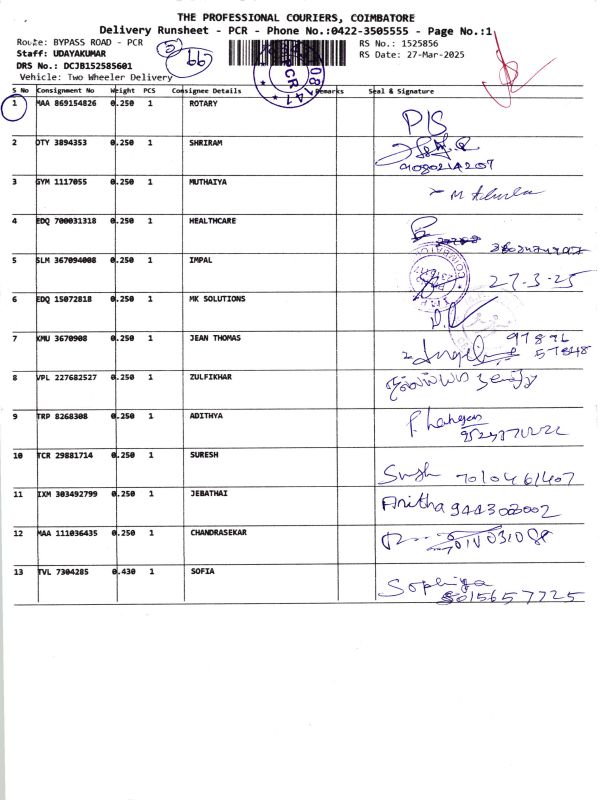 THE PROFESSIONAL COURIERS, COIMBATORE
Delivery Runsheet - PCR - Phone No.:0422-3505555 - Page No.:1
Route: BYPASS ROAD - PCR
RS No.: 1525856
Staff: UDAYAKUMAR
RS Date: 27-Mar-2025
DRS No.: DCJB152585601
Vehicle: Two Wheeler Delivery
66
PCR
S No Consignment No Weight PCS Consignee Details Remarks Seal & Signature
1 MAA 869154826 0.250 1 ROTARY
2 OTY 3894353 0.250 1 SHRIRAM
3 GYM 1117055 0.250 1 MUTHAIYA
4 EDQ 700031318 0.250 1 HEALTHCARE
5 SLM 367094008 0.250 1 IMPAL 27-3-25
6 EDQ 15072818 0.250 1 MK SOLUTIONS
7 KMU 3670908 0.250 1 JEAN THOMAS
8 VPL 227682527 0.250 1 ZULFIKHAR
9 TRP 8268308 0.250 1 ADITHYA
10 TCR 29881714 0.250 1 SURESH 7010461407
11 IXM 303492799 0.250 1 JEBATHAI Anitha
12 MAA 111036435 0.250 1 CHANDRASEKAR
13 TVL 7304285 0.430 1 SOFIA Sophiya